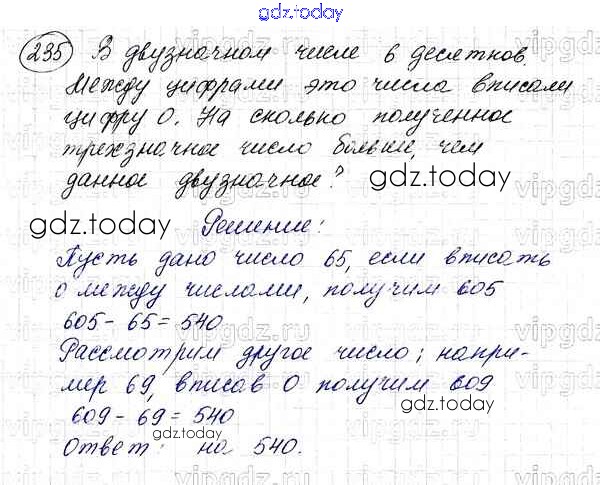 gdz.today
235 В двузначном числе 6 десятков.
Между цифрами это числа вписали
цифру 0. На сколько полученное
трехзначное число больше, чем
данное двузначное? gdz.today
gdz.today Решение:
Пусть дано число 65, если вписать
0 между числами, получим 605
605 - 65 = 540
Рассмотрим другое число; напри-
мер 69, вписав 0 получим 609
gdz.today
609 - 69 = 540
gdz.today
Ответ: на 540.